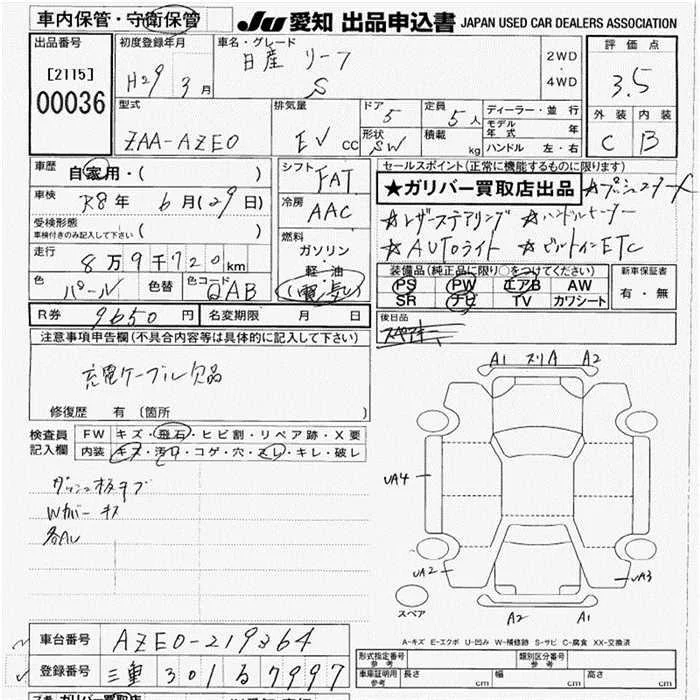 車内保管・守衛保管
JU 愛知 出品申込書 JAPAN USED CAR DEALERS ASSOCIATION
出品番号
[2115]
00036
初度登録年月
H29 3月
車名・グレード
日産 リーフ
S
2WD
4WD
評価点
3.5
外装 内装
C B
型式
ZAA-AZE0
排気量
EV cc
ドア 5
形状 SW
定員 5人
積載 kg
ディーラー・並行
モデル年式 年
ハンドル 左・右
車歴
自家用・( )
車検
R8年 6月(29日)
受検形態
車検付きのみ記入して下さい ( )
走行
8万9千720km
色 パール 色替 色コード QAB
シフト FAT
冷房 AAC
燃料
ガソリン
軽・油
(電気)
セールスポイント(正常に機能するものに限ります)
★ガリバー買取店出品 ☆プッシュスタート
☆レザーステアリング ☆ハンドルヒーター
☆AUTOライト ☆ビルトインETC
装備品(純正品に限り○をつけてください)
PS PW エアB AW
SR ナビ TV カワシート
新車保証書
有・無
R券 9650円 名変期限 月 日
後日品
注意事項申告欄(不具合内容等は具体的に記入して下さい)
充電ケーブル欠品
修復歴 有 〔箇所 〕
検査員記入欄
FW キズ・飛石・ヒビ割・リペア跡・X要
内装 キズ・汚れ・コゲ・穴・スレ・キレ・破レ
Wカバーキズ
各AU
A1 スリA A2
UA4
UA2 UA3
スペア
A2 A1
A-キズ E-エクボ U-凹み W-補修跡 S-サビ C-腐食 XX-交換済
車台番号 AZE0-219364
登録番号 三重 301 る 7997
形式指定番号 参考
類別区分番号 参考
車庫証明用 参考 長さ cm 幅 cm 高さ cm
ガリバー買取店